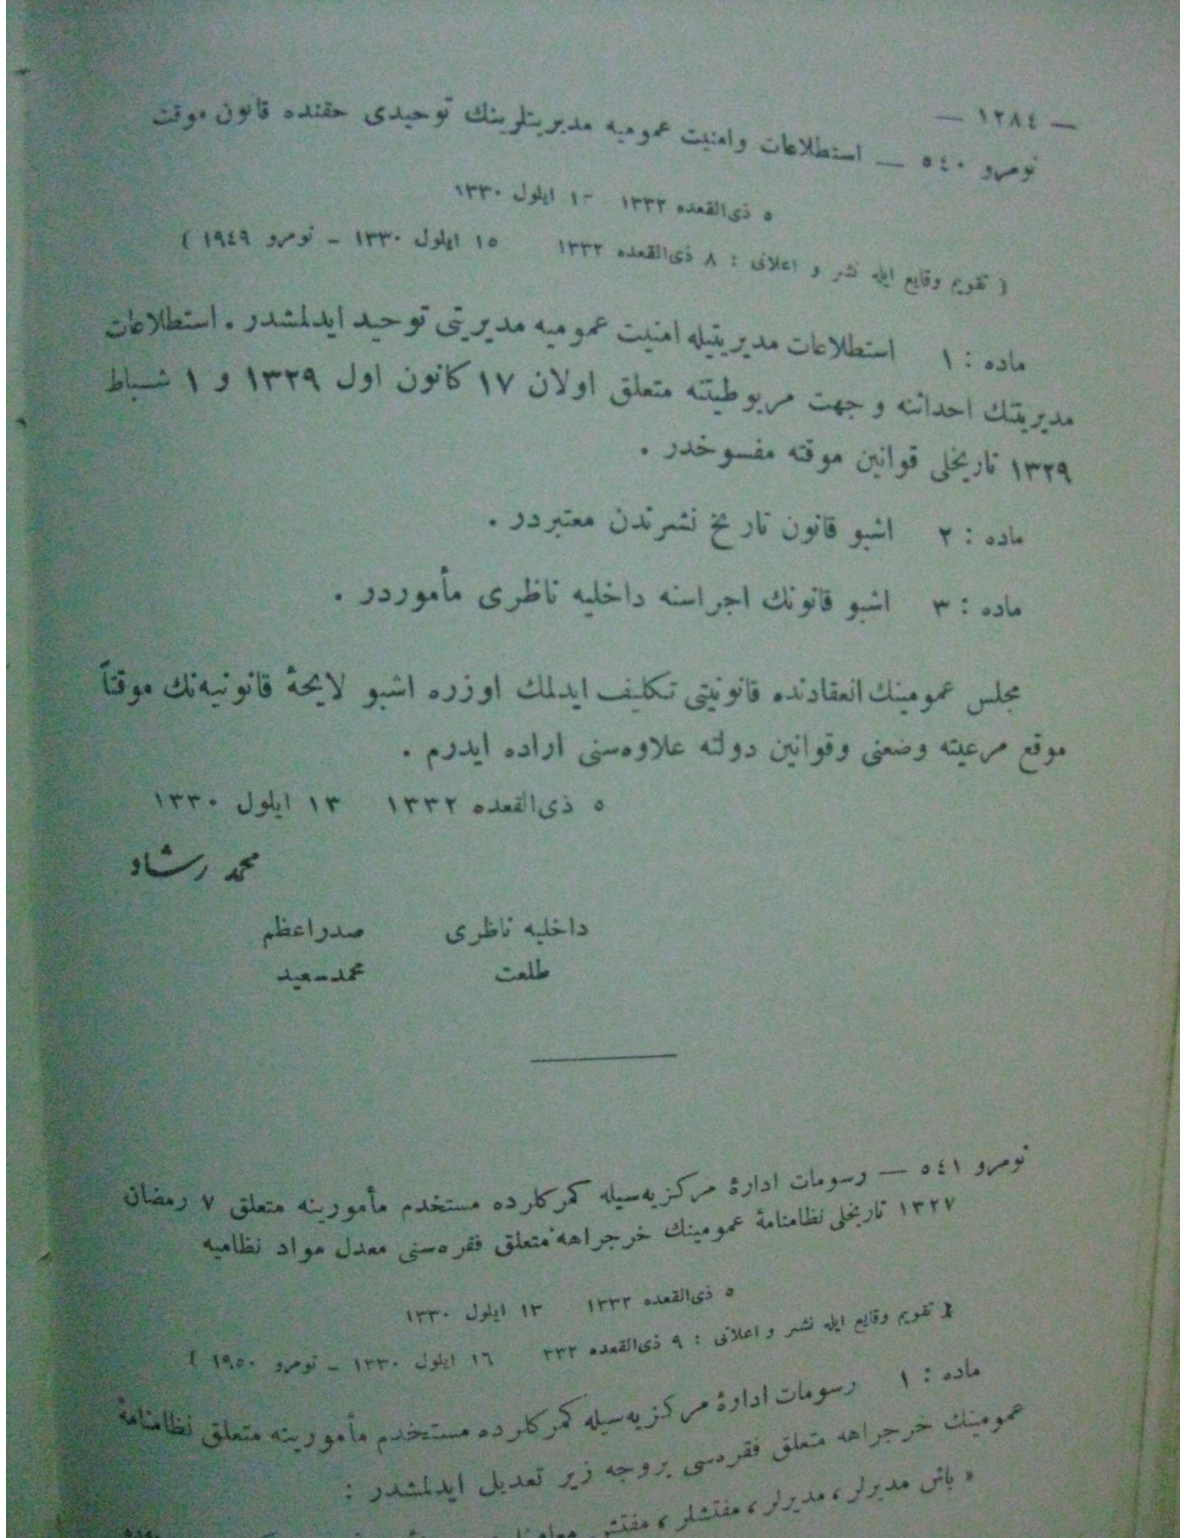 — ١٢٨٤ —
نومرو ٥٤٠ — استطلاعات وامنیت عمومیه مدیریتلرینك توحیدی حقنده قانون موقت
٥ ذی‌القعده ١٣٣٢ ١٣ ایلول ١٣٣٠
{ تقویم وقایع ایله نشر و اعلانی : ٨ ذی‌القعده ١٣٣٢ ١٥ ایلول ١٣٣٠ – نومرو ١٩٤٩ }
ماده : ١ استطلاعات مدیریتیله امنیت عمومیه مدیریتی توحید ایدلمشدر . استطلاعات
مدیریتنك احداثنه و جهت مربوطیتنه متعلق اولان ١٧ كانون اول ١٣٢٩ و ١ شباط
١٣٢٩ تاریخلی قوانین موقته مفسوخدر .
ماده : ٢ اشبو قانون تاریخ نشرندن معتبردر .
ماده : ٣ اشبو قانونك اجراسنه داخلیه ناظری مأموردر .
مجلس عمومینك انعقادنده قانونیتی تكلیف ایدلمك اوزره اشبو لایحۀ قانونیه‌نك موقتاً
موقع مرعیته وضعنی وقوانین دولته علاوه‌سنی اراده ایدرم .
٥ ذی‌القعده ١٣٣٢ ١٣ ایلول ١٣٣٠
محمد رشاد
داخلیه ناظری صدراعظم
طلعت محمدسعید
نومرو ٥٤١ — رسومات ادارۀ مركزیه‌سیله كمركلرده مستخدم مأمورینه متعلق ٧ رمضان
١٣٢٧ تاریخلی نظامنامۀ عمومینك خرجراهه متعلق فقره‌سنی معدل مواد نظامیه
٥ ذی‌القعده ١٣٣٢ ١٣ ایلول ١٣٣٠
{ تقویم وقایع ایله نشر و اعلانی : ٩ ذی‌القعده ٣٣٢ ١٦ ایلول ١٣٣٠ – نومرو ١٩٥٠ }
ماده : ١ رسومات ادارۀ مركزیه‌سیله كمركلرده مستخدم مأمورینه متعلق نظامنامۀ
عمومینك خرجراهه متعلق فقره‌سی بروجه زیر تعدیل ایدلمشدر :
« باش مدیرلر ، مدیرلر ، مفتشلر ، مفتش